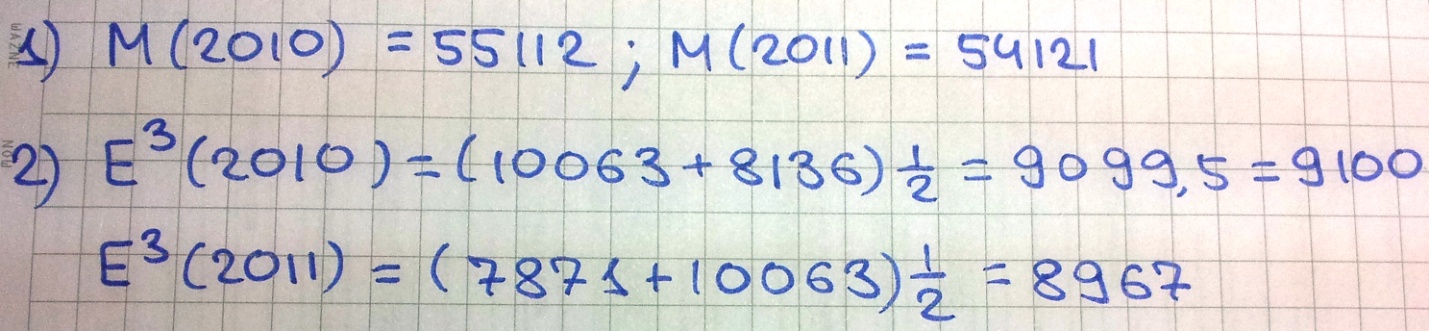 1) M(2010) = 55112 ; M(2011) = 54121
2) E³(2010) = (10063 + 8136) ½ = 9099,5 = 9100
E³(2011) = (7871 + 10063) ½ = 8967